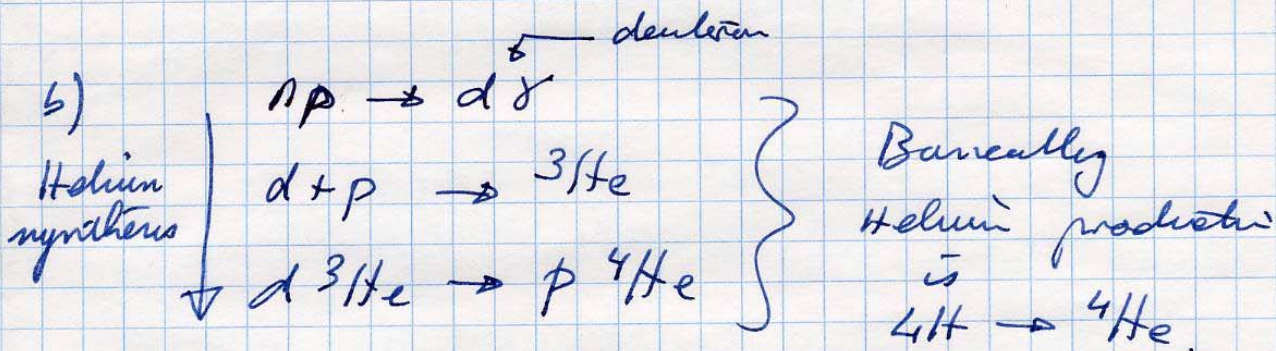 deuteron
b) np → dγ
Helium synthesis
d + p → ³He
d ³He → p ⁴He
Basically
Helium production
is
4H → ⁴He.